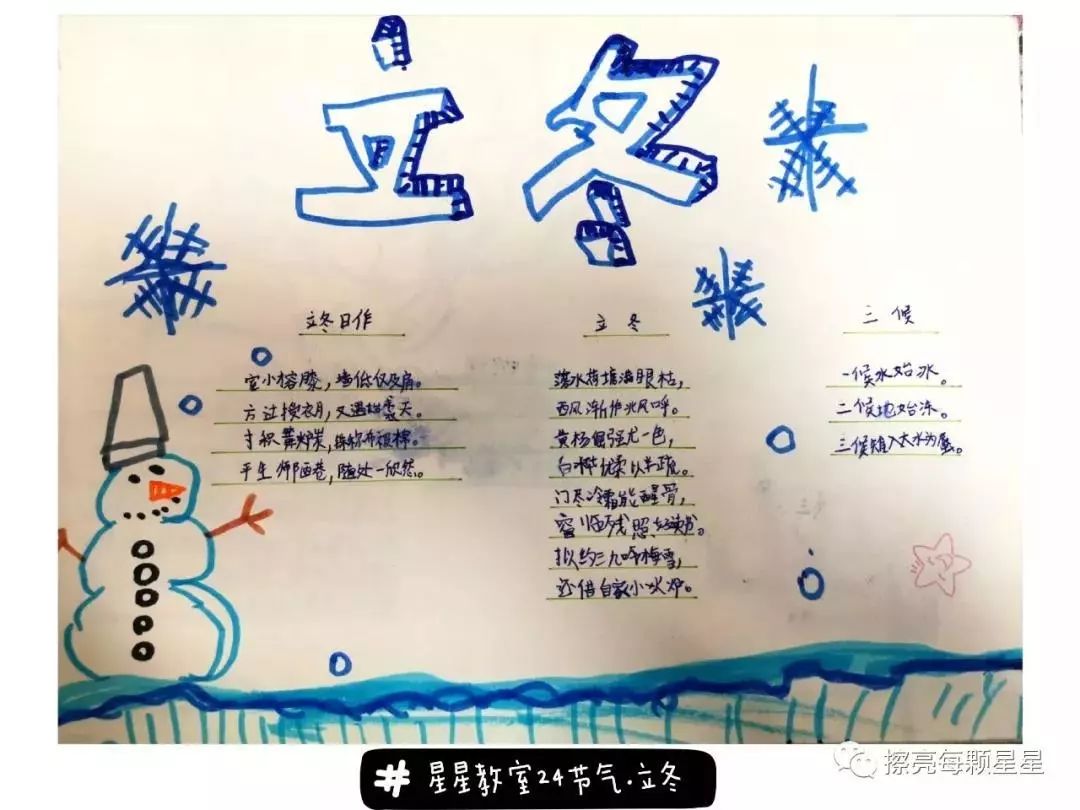 立冬
立冬日作
室小榕膝,墙低仅及肩。
方过授衣月,又遇始裘天。
寸积篝炉炭,铢称布被棉。
平生师陋巷,随处一欣然。
立冬
落水荷塘满眼枯,
西风渐作北风呼。
黄杨倔强尤一色,
白桦优柔以半疏。
门尽冷霜能醒骨,
窗临残照好读书。
拟约三九吟梅雪,
还借自家小火炉。
三候
一候水始冰。
二候地始冻。
三候雉入大水为蜃。
#星星教室24节气.立冬
擦亮每颗星星